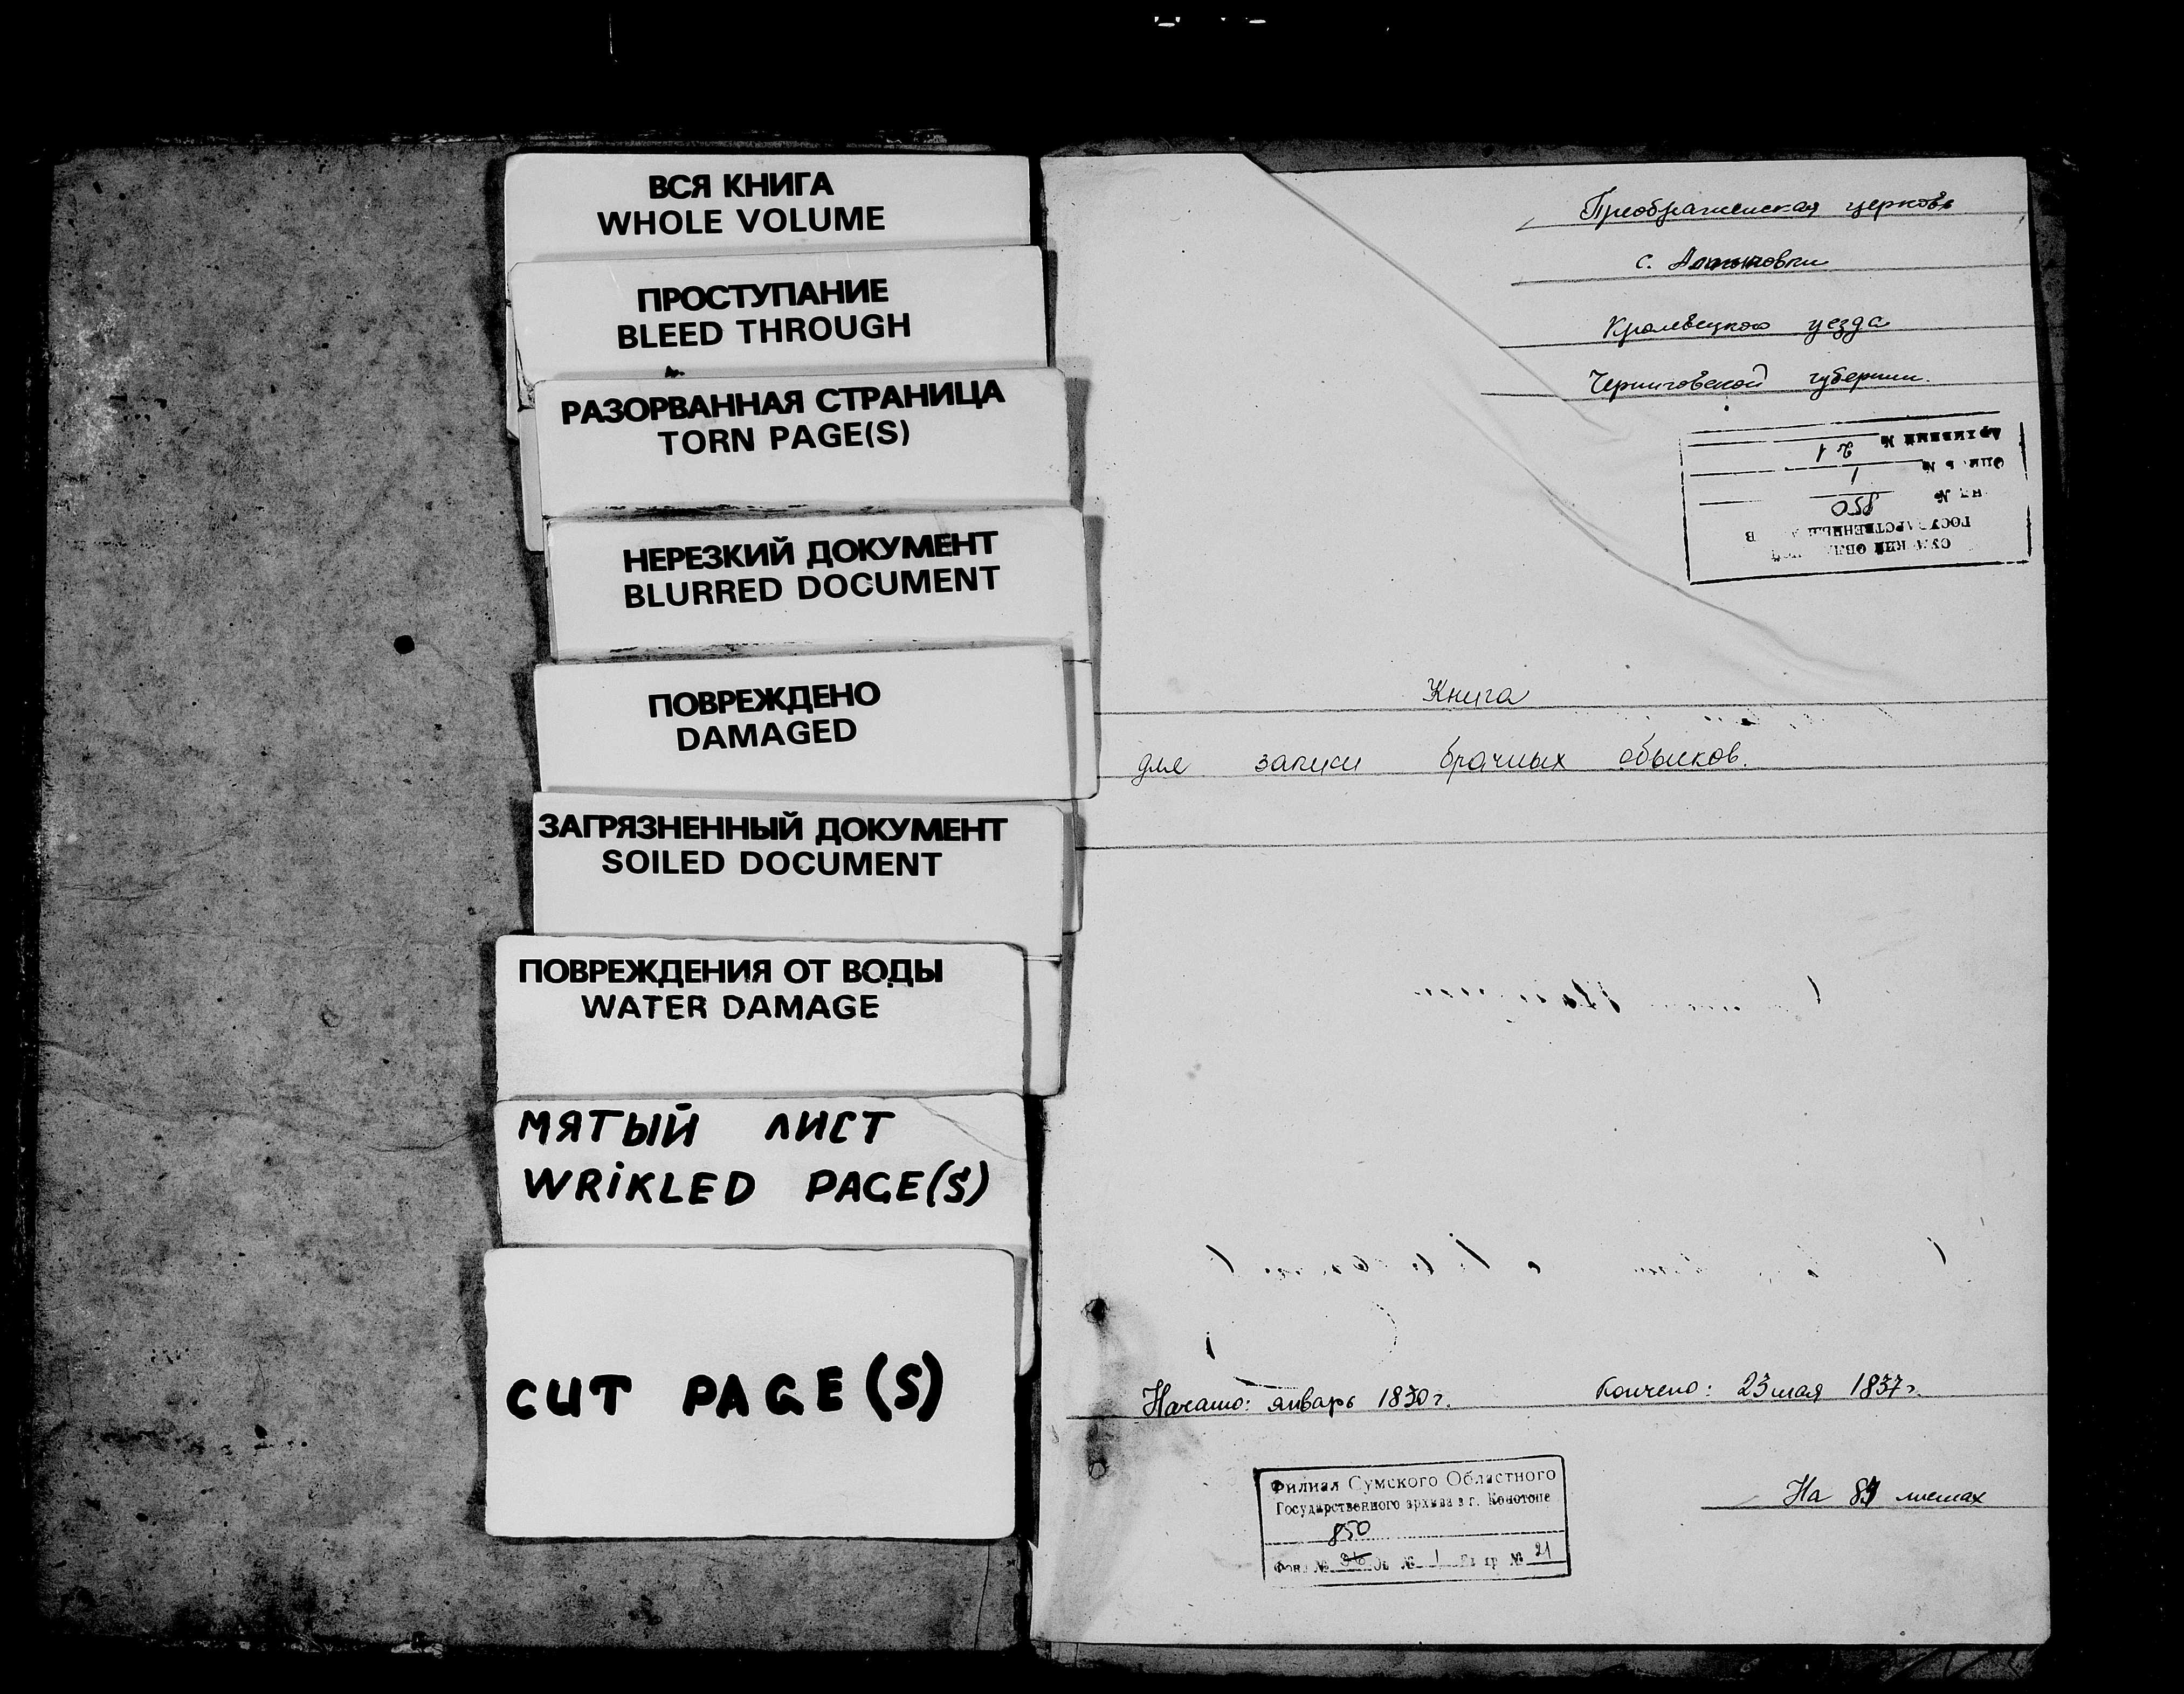 ВСЯ КНИГА
WHOLE VOLUME
ПРОСТУПАНИЕ
BLEED THROUGH
РАЗОРВАННАЯ СТРАНИЦА
TORN PAGE(S)
НЕРЕЗКИЙ ДОКУМЕНТ
BLURRED DOCUMENT
ПОВРЕЖДЕНО
DAMAGED
ЗАГРЯЗНЕННЫЙ ДОКУМЕНТ
SOILED DOCUMENT
ПОВРЕЖДЕНИЯ ОТ ВОДЫ
WATER DAMAGE
МЯТЫЙ ЛИСТ
WRiKLED PAGE(S)
CUT PAGE(S)
Преображенская церковь
с. Алтыновки
Кролевецкого уезда
Черниговской губернии.
АРХИВНЫЙ № 21
1
850
Книга
для записи брачных обысков.
Начато: январь 1830 г. Кончено: 23 мая 1837 г.
Филиал Сумского Областного
Государственного архива в г. Конотопе
850
№ 1 № 21
На листах